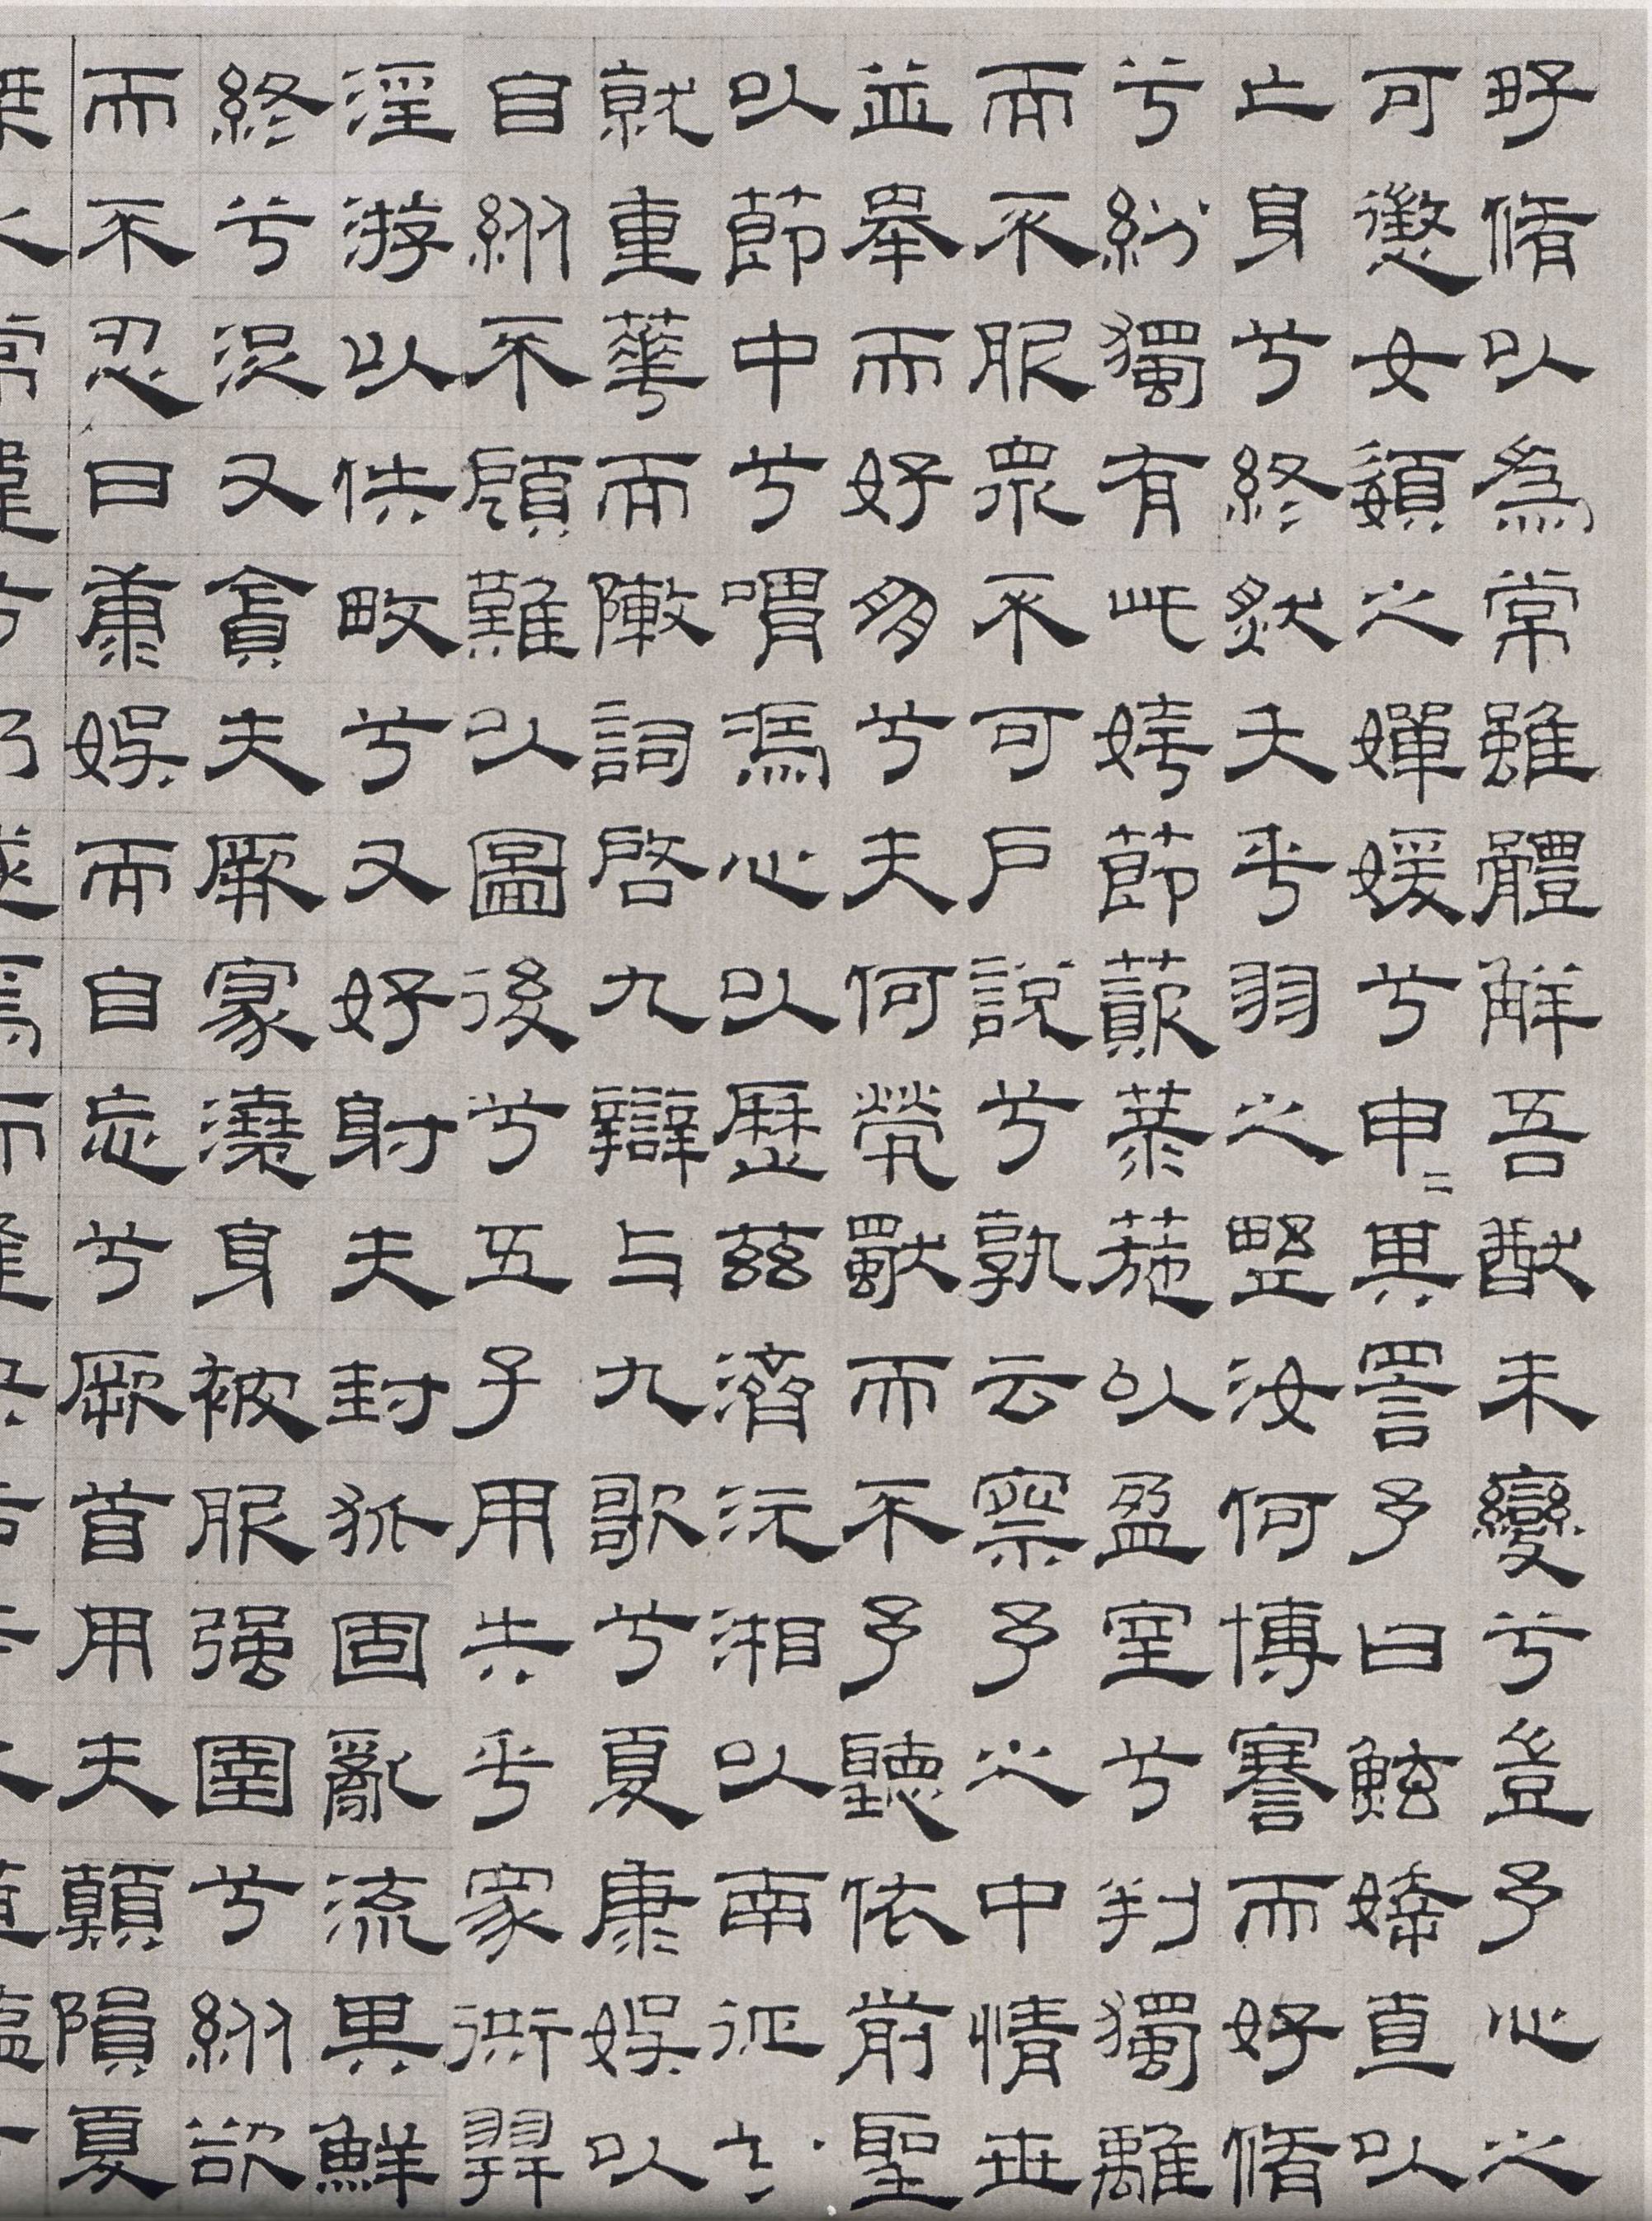 好脩以為常雖體解吾猷未變兮豈予心之
可懲女嬃之嬋媛兮申=其詈予曰鮌婞直以
亡身兮終然夭乎羽之野汝何博謇而好脩
兮紛獨有此姱節薋菉葹以盈室兮判獨離
而不服眾不可戶說兮孰云察予之中情世
並舉而好朋兮夫何煢獨而不予聽依前聖
以節中兮喟焉心以歷茲濟沅湘以南征
就重華而敶詞啓九辯与九歌兮夏康娛以
自縱不顧難以圖後兮五子用失乎家衖羿
淫游以佚畋兮又好射夫封狐固亂流其鮮
終兮浞又貪夫厥家澆身被服强圉兮縱欲
而不忍日康娛而自忘兮厥首用夫顛隕夏